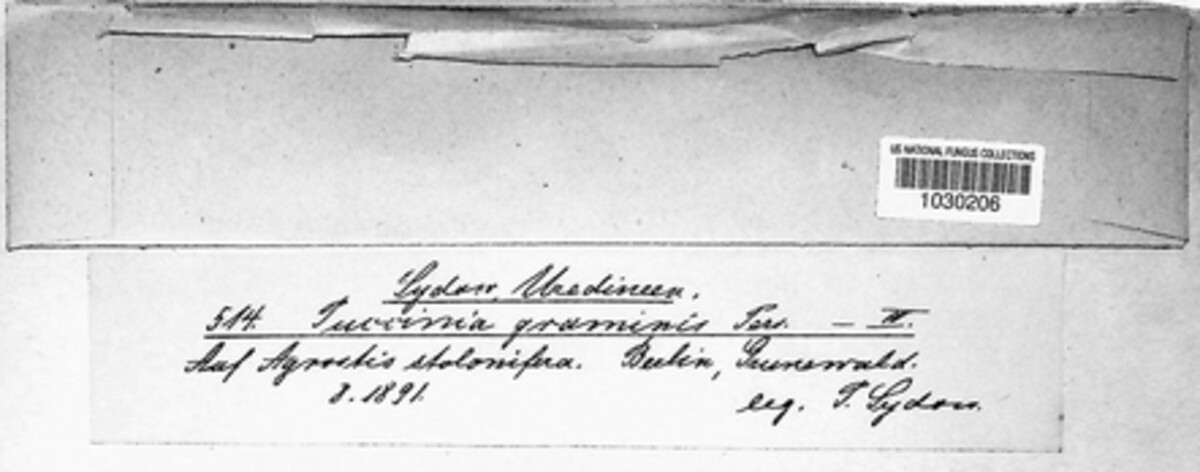 US NATIONAL FUNGUS COLLECTIONS
1030206
Sydow, Uredineen.
514. Puccinia graminis Pers. — III.
Auf Agrostis stolonifera. Berlin, Grunewald.
8. 1891.
leg. P. Sydow.